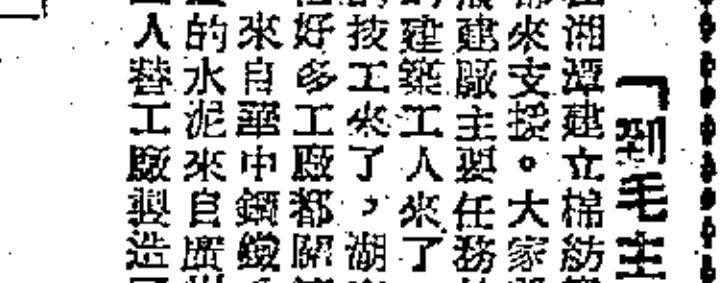 「到毛主
湘潭建立棉紡
來支援。大家
建廠主要任務
建築工人來了
技工來了，湖
好多工廠都開
來自華中鋼鐵
的水泥來自廣州
人替工廠製造